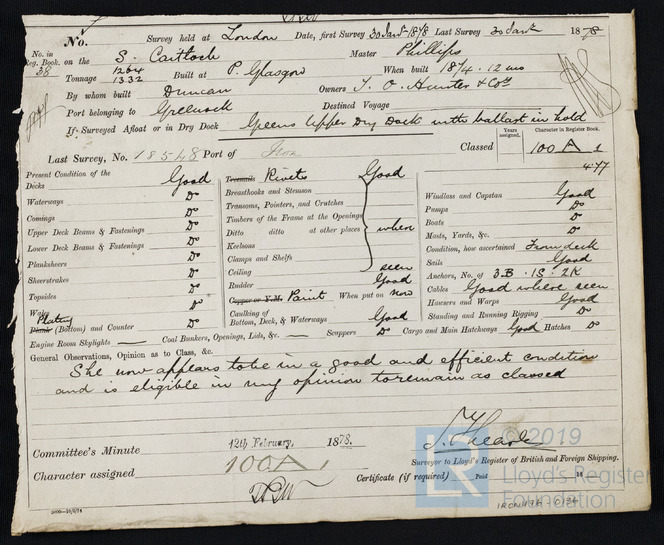 No. Survey held at London Date, first Survey 30 Jany 1878 Last Survey 30 Jany 1878
No. in Reg. Book. 38 on the S. Caitloch Master Phillips
Tonnage 1264 1332 Built at P. Glasgow When built 1874. 12 mo
By whom built Duncan Owners T. O. Hunter & Coy
Port belonging to Greenock Destined Voyage
If Surveyed Afloat or in Dry Dock Greens Upper Dry Dock with ballast in hold
Last Survey, No. 18548 Port of Iron Classed Years assigned. Character in Register Book. 100 A 1
4,77
Present Condition of the
Decks Good
Waterways Do
Comings Do
Upper Deck Beams & Fastenings Do
Lower Deck Beams & Fastenings Do
Planksheers Do
Sheerstrakes Do
Topsides Do
Wales Do
Plating
Plank (Bottom) and Counter Do
Engine Room Skylights —
Treenails Rivets Good
Breasthooks and Stemson
Transoms, Pointers, and Crutches
Timbers of the Frame at the Openings
Ditto ditto at other places where
Keelsons
Clamps and Shelfs
Ceiling seen
Rudder Good
Copper or Y.M. Paint When put on now
Caulking of
Bottom, Deck, & Waterways Good
Coal Bunkers, Openings, Lids, &c. — Scuppers Do Cargo and Main Hatchways Good Hatches Do
Windlass and Capstan Good
Pumps Do
Boats Do
Masts, Yards, &c. Do
Condition, how ascertained From deck
Sails Good
Anchors, No. of 3.B. 1S. 2K
Cables Good where seen
Hawsers and Warps Good
Standing and Running Rigging Do
General Observations, Opinion as to Class, &c.
She now appears to be in a good and efficient condition
and is eligible in my opinion to remain as classed
Committee's Minute 12th February, 1878.
Character assigned 100A1
Surveyor to Lloyd's Register of British and Foreign Shipping.
Certificate (if required) Post 18
IRON476-0136
© 2019
LR
Lloyd's Register
Foundation